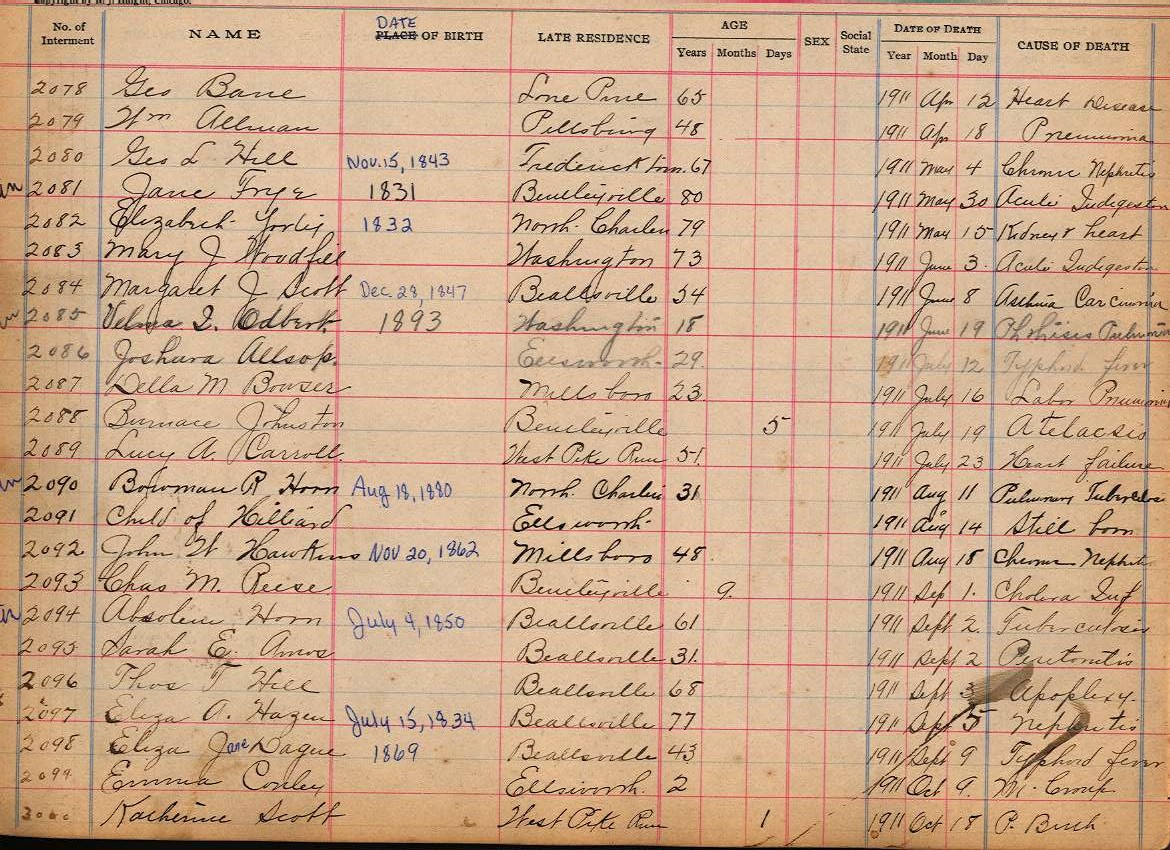 Copyright by W. J. Knight, Chicago.
No. of Interment NAME DATE PLACE OF BIRTH LATE RESIDENCE AGE Years Months Days SEX Social State DATE OF DEATH Year Month Day CAUSE OF DEATH
2078 Geo Bane Lone Pine 65 1911 Apr 12 Heart Disease
2079 Wm Allman Pittsburg 48 1911 Apr 18 Pneumonia
2080 Geo L Hill Nov. 15, 1843 Fredericktown. 67 1911 May 4 Chronic Nephritis
2081 Jane Frye 1831 Bentleyville 80 1911 May 30 Acute Indigestion
2082 Elizabeth 1832 North. Charleri 79 1911 May 15 Kidney & heart
2083 Mary J Woodfill Washington 73 1911 June 3. Acute Indigestion
2084 Margaret J Scott Dec. 28, 1847 Beallsville 54 1911 June 8 Asthma Carcinoma
2085 Velma I. Odbert 1893 Washington 18 1911 June 19 Phthisis Pulmonar
2086 Joshura Allsop. Ellsworth. 29. 1911 July 12 Typhoid fever
2087 Della M Bowser Millsboro 23 1911 July 16 Lobar Pneumonia
2088 Johnston Bentleyville 5 1911 July 19 Atelacsis
2089 Lucy A. Carroll West Pike Run 51. 1911 July 23 Heart failure
2090 Bowman R Horn Aug 18, 1880 North. Charleri 31 1911 Aug 11 Pulmonary Tuberculosis
2091 Child of Hilliard Ellsworth. 1911 Aug 14 Still born
2092 John W Hawkins Nov 20, 1862 Millsboro 48 1911 Aug 18 Chronic Nephritis
2093 Chas M. Reese Bentleyville 9. 1911 Sep 1. Cholera Inf
2094 Absolem Horn July 4, 1850 Beallsville 61 1911 Sept 2. Tuberculosis
2095 Sarah E. Amos Beallsville 31. 1911 Sept 2 Peritonitis
2096 Thos T Hill Beallsville 68 1911 Sept 3 Apoplexy.
2097 Eliza A. Hazen July 15, 1834 Beallsville 77 1911 Sept 5 Nephritis
2098 Eliza Jane Dague 1869 Beallsville 43 1911 Sept 9 Typhoid fever
2099 Emma Conley Ellsworth. 2 1911 Oct 9. M. Croup
2000 Katherine Scott West Pike Run 1 1911 Oct 18 P. Birth